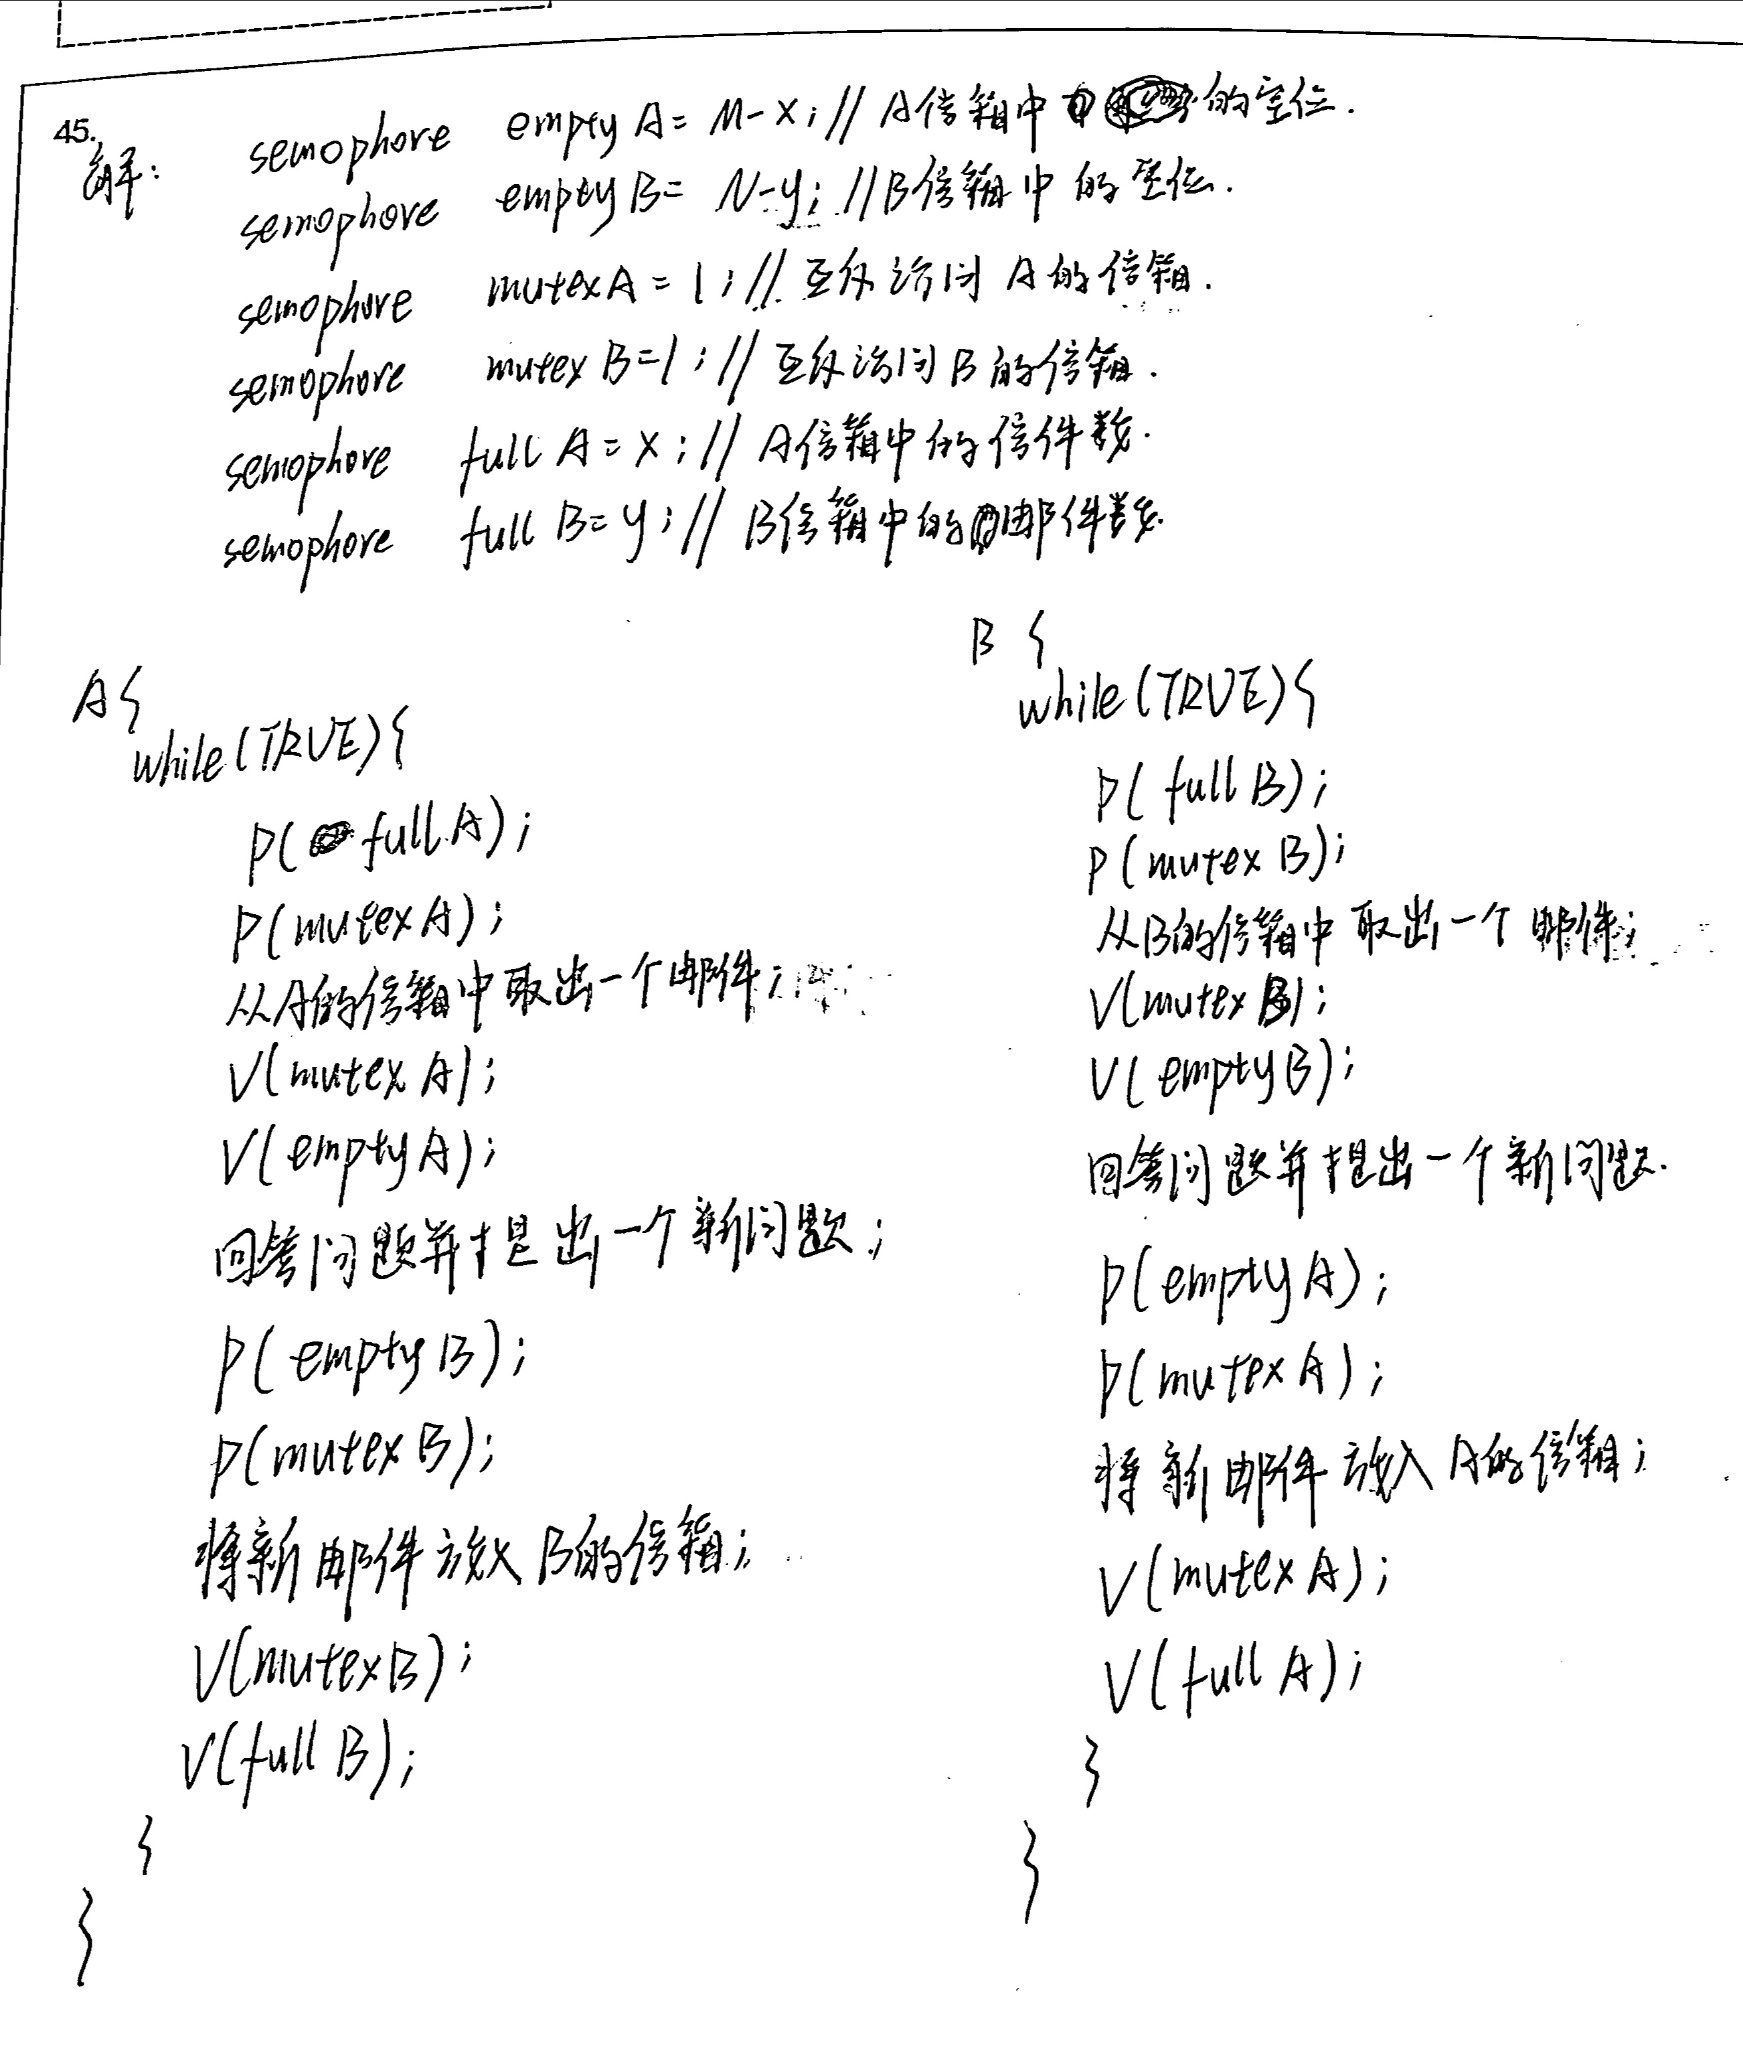 45.
解: semophore empty A = M-x; // A信箱中的空位.
semophore empty B = N-y; // B信箱中的空位.
semophore mutex A = 1; // 互斥访问 A的信箱.
semophore mutex B = 1; // 互斥访问 B的信箱.
semophore full A = x; // A信箱中的信件数.
semophore full B = y; // B信箱中的邮件数.
A{
while(TRUE){
P(full A);
P(mutex A);
从A的信箱中取出一个邮件;
V(mutex A);
V(empty A);
回答问题并提出一个新问题;
P(empty B);
P(mutex B);
将新邮件放入B的信箱;
V(mutex B);
V(full B);
}
}
B {
while(TRUE){
P(full B);
P(mutex B);
从B的信箱中取出一个邮件;
V(mutex B);
V(empty B);
回答问题并提出一个新问题.
P(empty A);
P(mutex A);
将新邮件放入A的信箱;
V(mutex A);
V(full A);
}
}